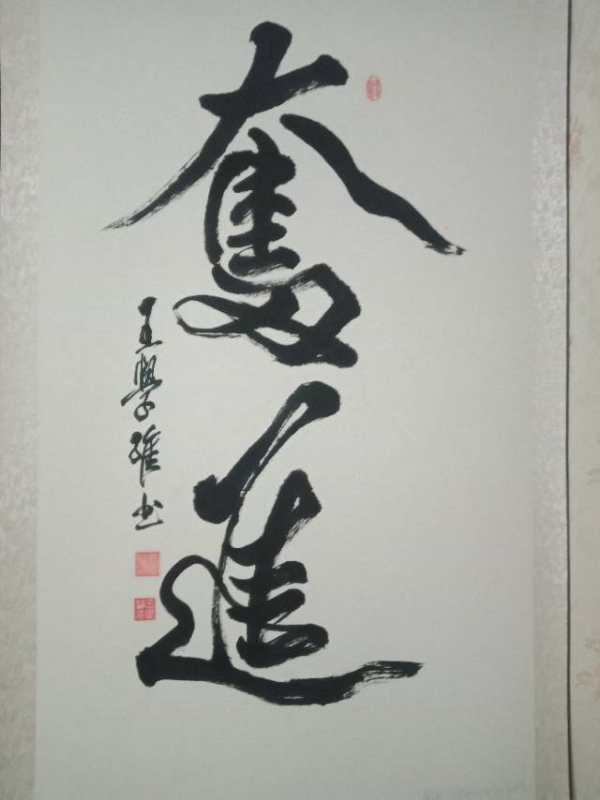 奮進
王學雅書